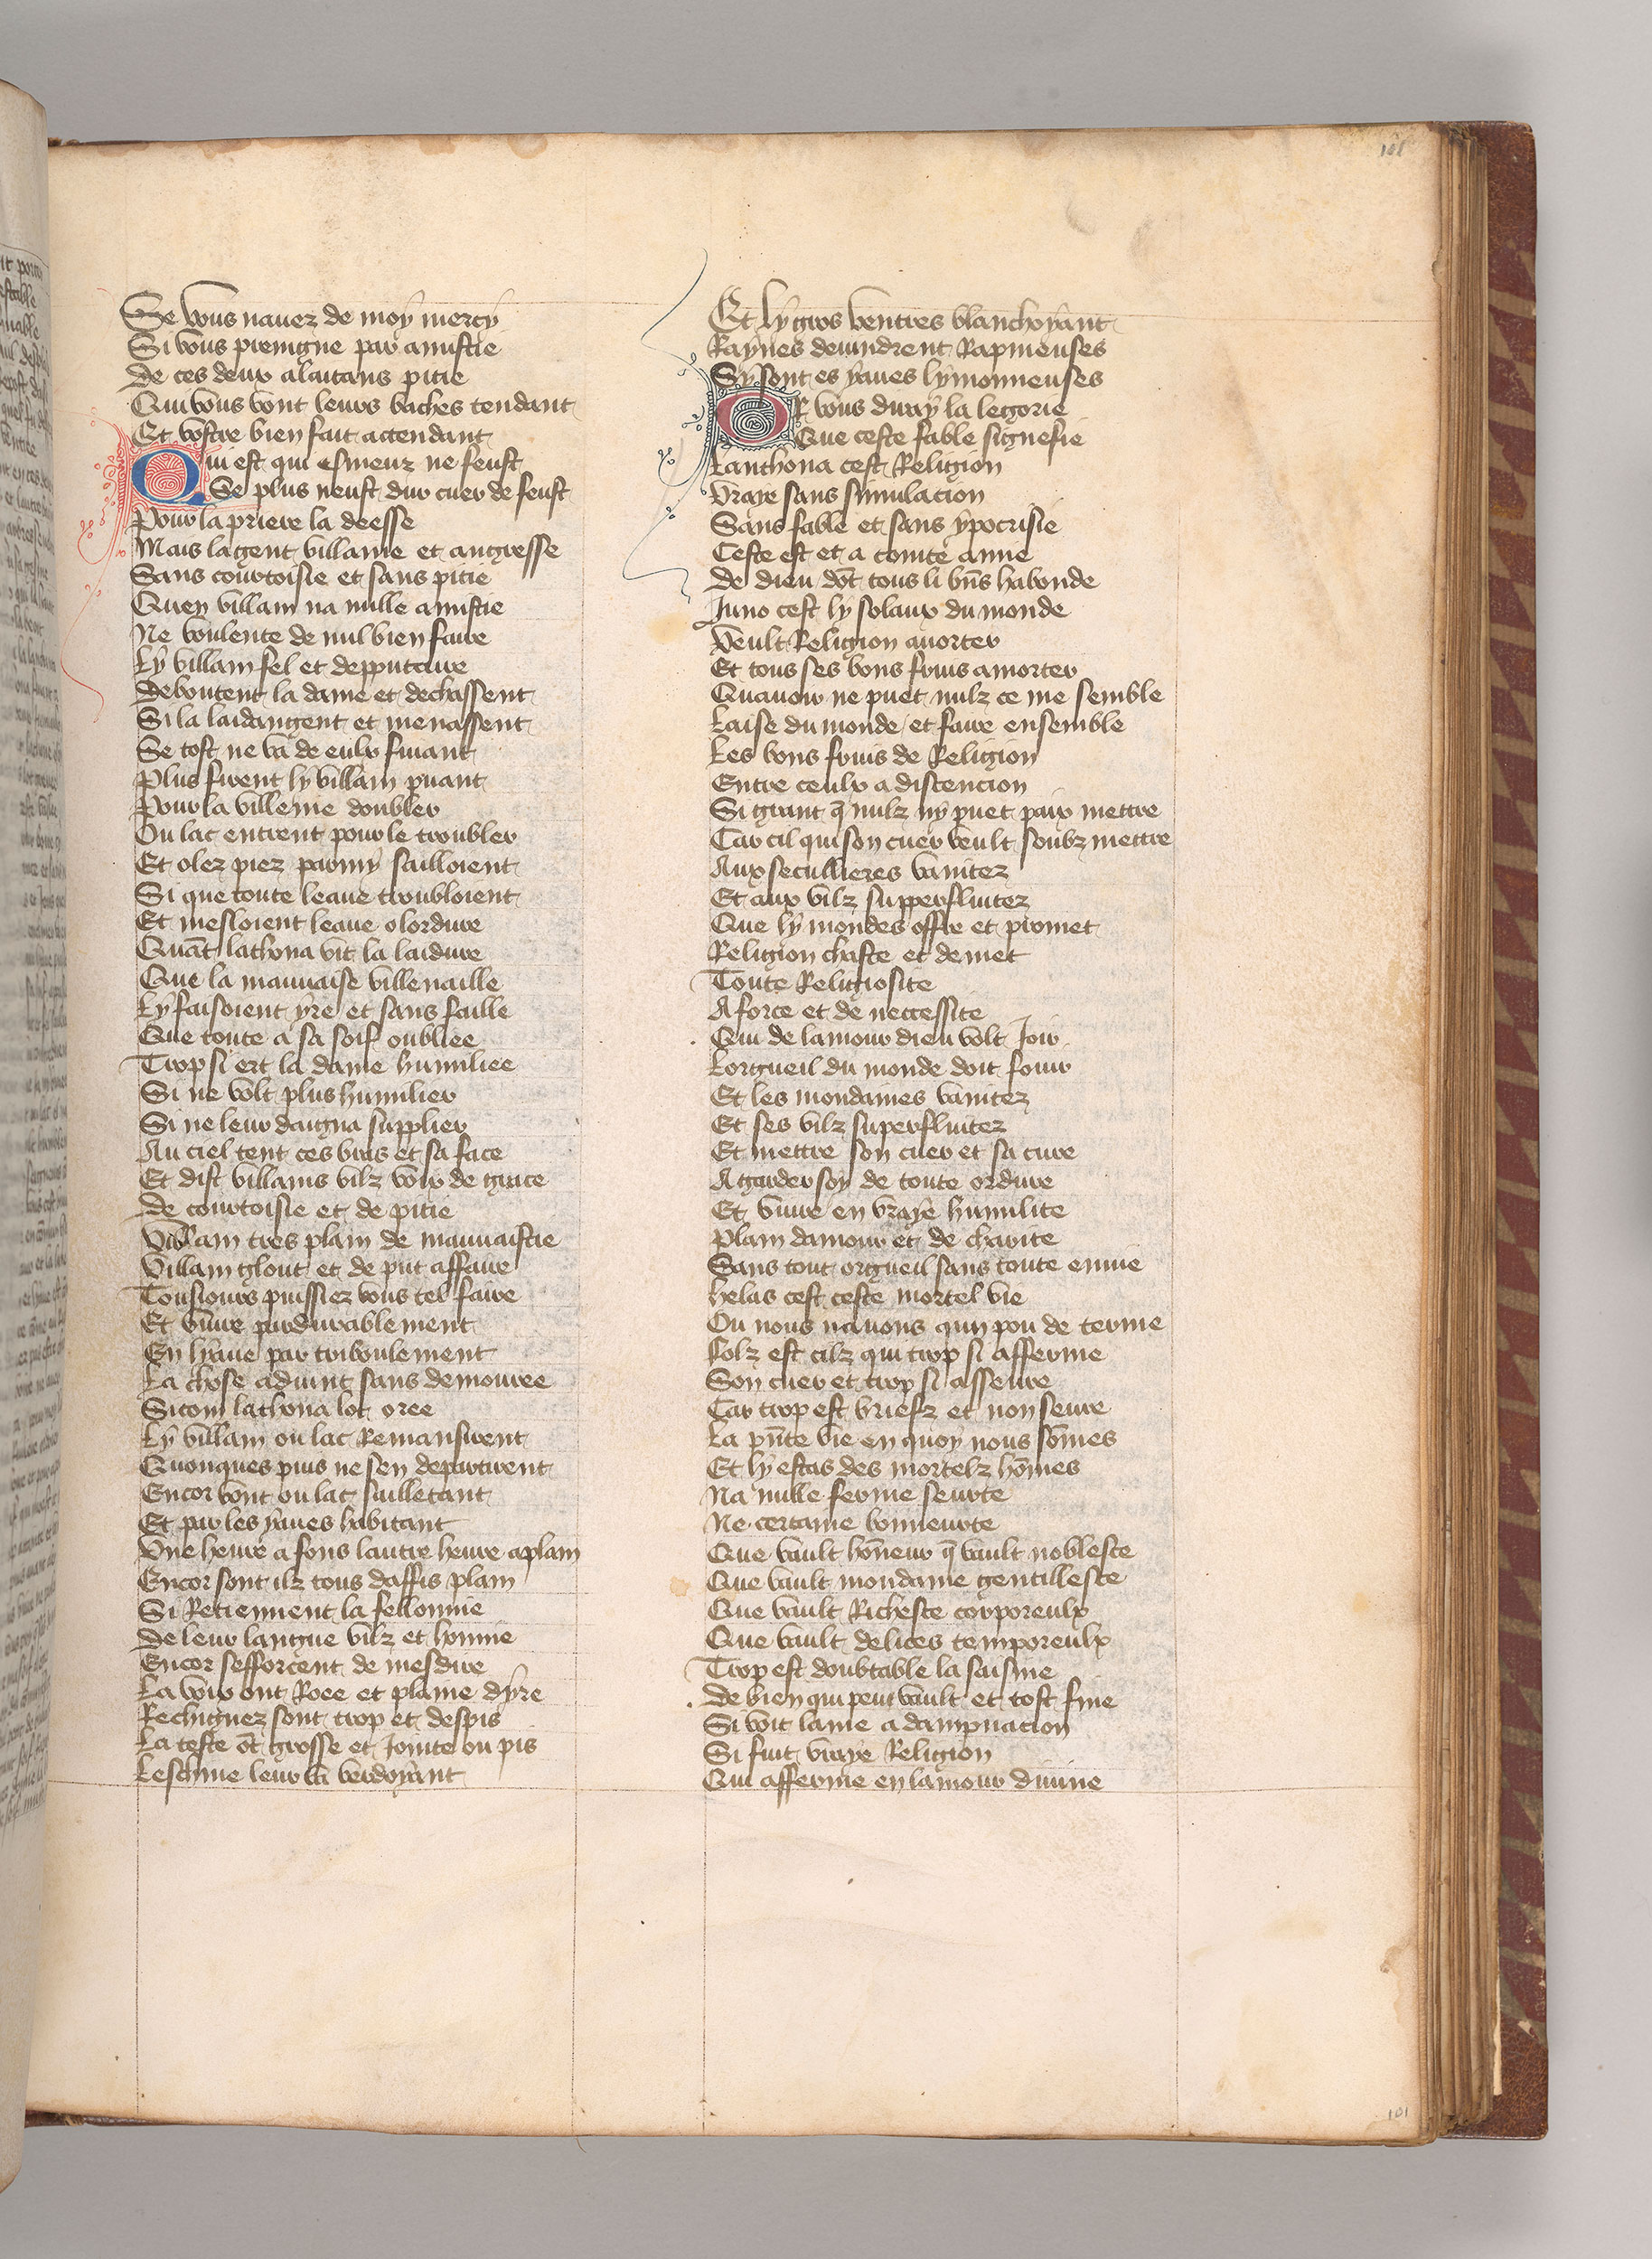 101
Se vous navez de moy mercy
Si vous preingne par amistie
De ces deux alaitans pitie
Qui vous vont leurs baches tendant
Et vostre bien fait attendant
Qui est qui esmeuz ne feust
Se plus neust dur cuer de feust
Pour la priere la deesse
Mais la gent villaine et angresse
Sans courtoisie et sans pitie
Quen villain na nulle amistie
Ne voulente de nul bien faire
Ly villain fel et depputaire
Deboutent la dame et dechassent
Si la laidangent et menassent
Se tost ne va de eulx fuiant
Plus firent ly villain puant
Pour la villenie doubler
Ou lac entrent pour le troubler
Et olez piez parmy sailloient
Si que toute leaue troubloient
Et mesloient leaue olordure
Quāt lathona vit la laidure
Que la mauvaise villenaille
Ly faisoient yre et sans faille
Que toute a sa soif oubliee
Trop si ert la dame humiliee
Si ne volt plus humilier
Si ne leur daigna supplier
Au ciel tent ces bras et sa face
Et dist villains vilz voix de grace
De courtoisie et de pitie
Villain tres plain de mauvaistie
Villain glout et de put affaire
Tousiours puissiez vous tel faire
Et vivre pardurablement
En lyaue par triboulement
La chose advint sans demouree
Si com lathona lot oree
Ly villain ou lac Remansirent
Quonques puis ne sen departirent
Encor vont ou lac sailletant
Et par les yaues habitant
Une heure a fons lautre heure aplain
Encor sont ilz tous daffis plain
Si Retiennent la fellonnie
De leur langue vilz et honnie
Encor sefforcent de mesdire
La voix ont Roee et plaine dyre
Rechignez sont trop et despis
La teste ōt grosse et Jointe ou pis
Leschine leur va verdoyant
Et ly gros ventres blanchoyant
Raynes devindrent Rapineuses
Sy sont es yaues lymonneuses
Or vous diray la legorie
Que ceste fable signefie
Lanthona cest Religion
Vraye sans simulacion
Sans fable et sans ypocrisie
Ceste est et a cointe amie
De dieu dōt tous li bn̄s habonde
Juno cest ly solaux du monde
Veult Religion avorter
Et tous ses bons fruis amorter
Quavoir ne puet nulz ce me semble
Laise du monde et faire ensemble
Les bons fruis de Religion
Entre ceulx a discencion
Si grant q̄ nulz ny puet paix mettre
Car cil qui son cuer veult soubz mettre
Aux secullieres vanitez
Et aux vilz supperfluitez
Que ly mondes offre et promet
Religion chaste et demet
Toute Religiosite
A force et de neccessite
Qui de lamour dieu volt Joir
Lorgueil du monde doit fouir
Et les mondaines vanitez
Et ses vilz superfluitez
Et mettre son cuer et sa cure
A garder soy de toute ordure
Et vivre en vraye humilite
Plain damour et de charite
Sans tout orgueil sans toute envie
helas cest ceste mortel vie
Ou nous navons quun pou de terme
Folz est cilz qui trop si afferme
Son cuer et trop si asseure
Car trop est briefz et non seure
La pn̄te vie en quoy nous sōmes
Et ly estas des mortelz hōmes
Na nulle ferme seurte
Ne certaine bonneurte
Que vault hōneur q̄ vault noblesce
Que vault mondaine gentillesce
Que vault Richesce corporeulx
Que vault delices temporeulx
Trop est doubtable la saisine
De bien qui peut vault et tost fine
Si voit lame a dampnacion
Si fuit vraye Religion
Qui afferme en lamour divine
101